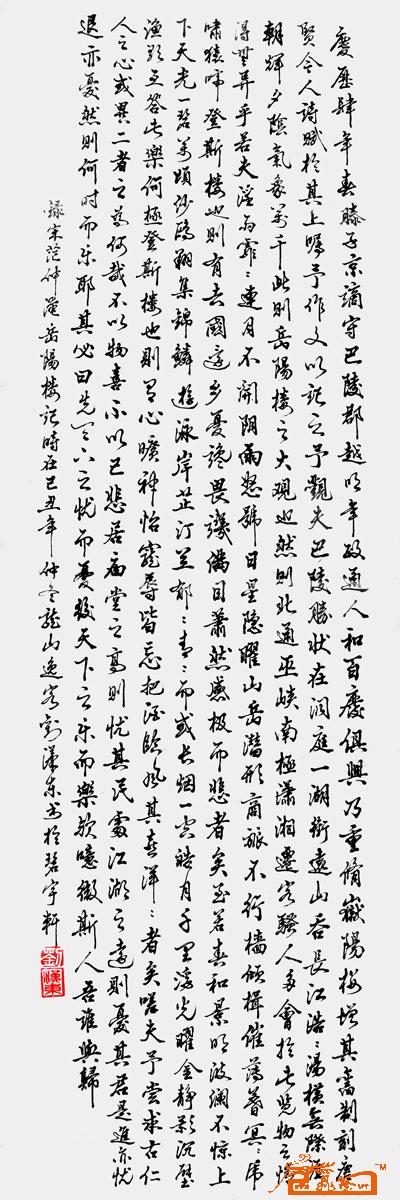 慶歷肆年春滕子京謫守巴陵郡越明年政通人和百廢俱興乃重脩嶽陽樓增其舊制刻唐
賢今人詩賦於其上囑予作文以記之予觀夫巴陵勝狀在洞庭一湖銜遠山吞長江浩〻湯〻橫無際涯
朝輝夕陰氣象萬千此則岳陽樓之大觀也然則北通巫峽南極瀟湘遷客騷人多會於此覽物之情
得無異乎若夫淫雨霏〻連月不開阴雨怒號日星隱曜山岳潛形商旅不行檣傾楫摧薄暮冥〻虎
嘯猿啼登斯樓也則有去國還鄉憂讒畏譏滿目蕭然感極而悲者矣至若春和景明波瀾不驚上
下天光一碧萬頃沙鷗翔集錦鱗游泳岸芷汀蘭郁〻青〻而或長烟一空皓月千里浮光曜金靜影沉璧
漁歌互答此樂何極登斯樓也則有心曠神怡寵辱皆忘把酒臨風其喜洋〻者矣嗟夫予嘗求古仁
人之心或異二者之為何哉不以物喜不以己悲居廟堂之高則忧其民處江湖之遠則憂其君是進亦忧
退亦憂然則何时而乐耶其必曰先天下之忧而憂後天下之乐而樂歟噫微斯人吾誰與歸
錄宋范仲淹岳陽樓記時在己丑年仲冬龍山逸客劉漢东书於碧宇軒
劉漢東